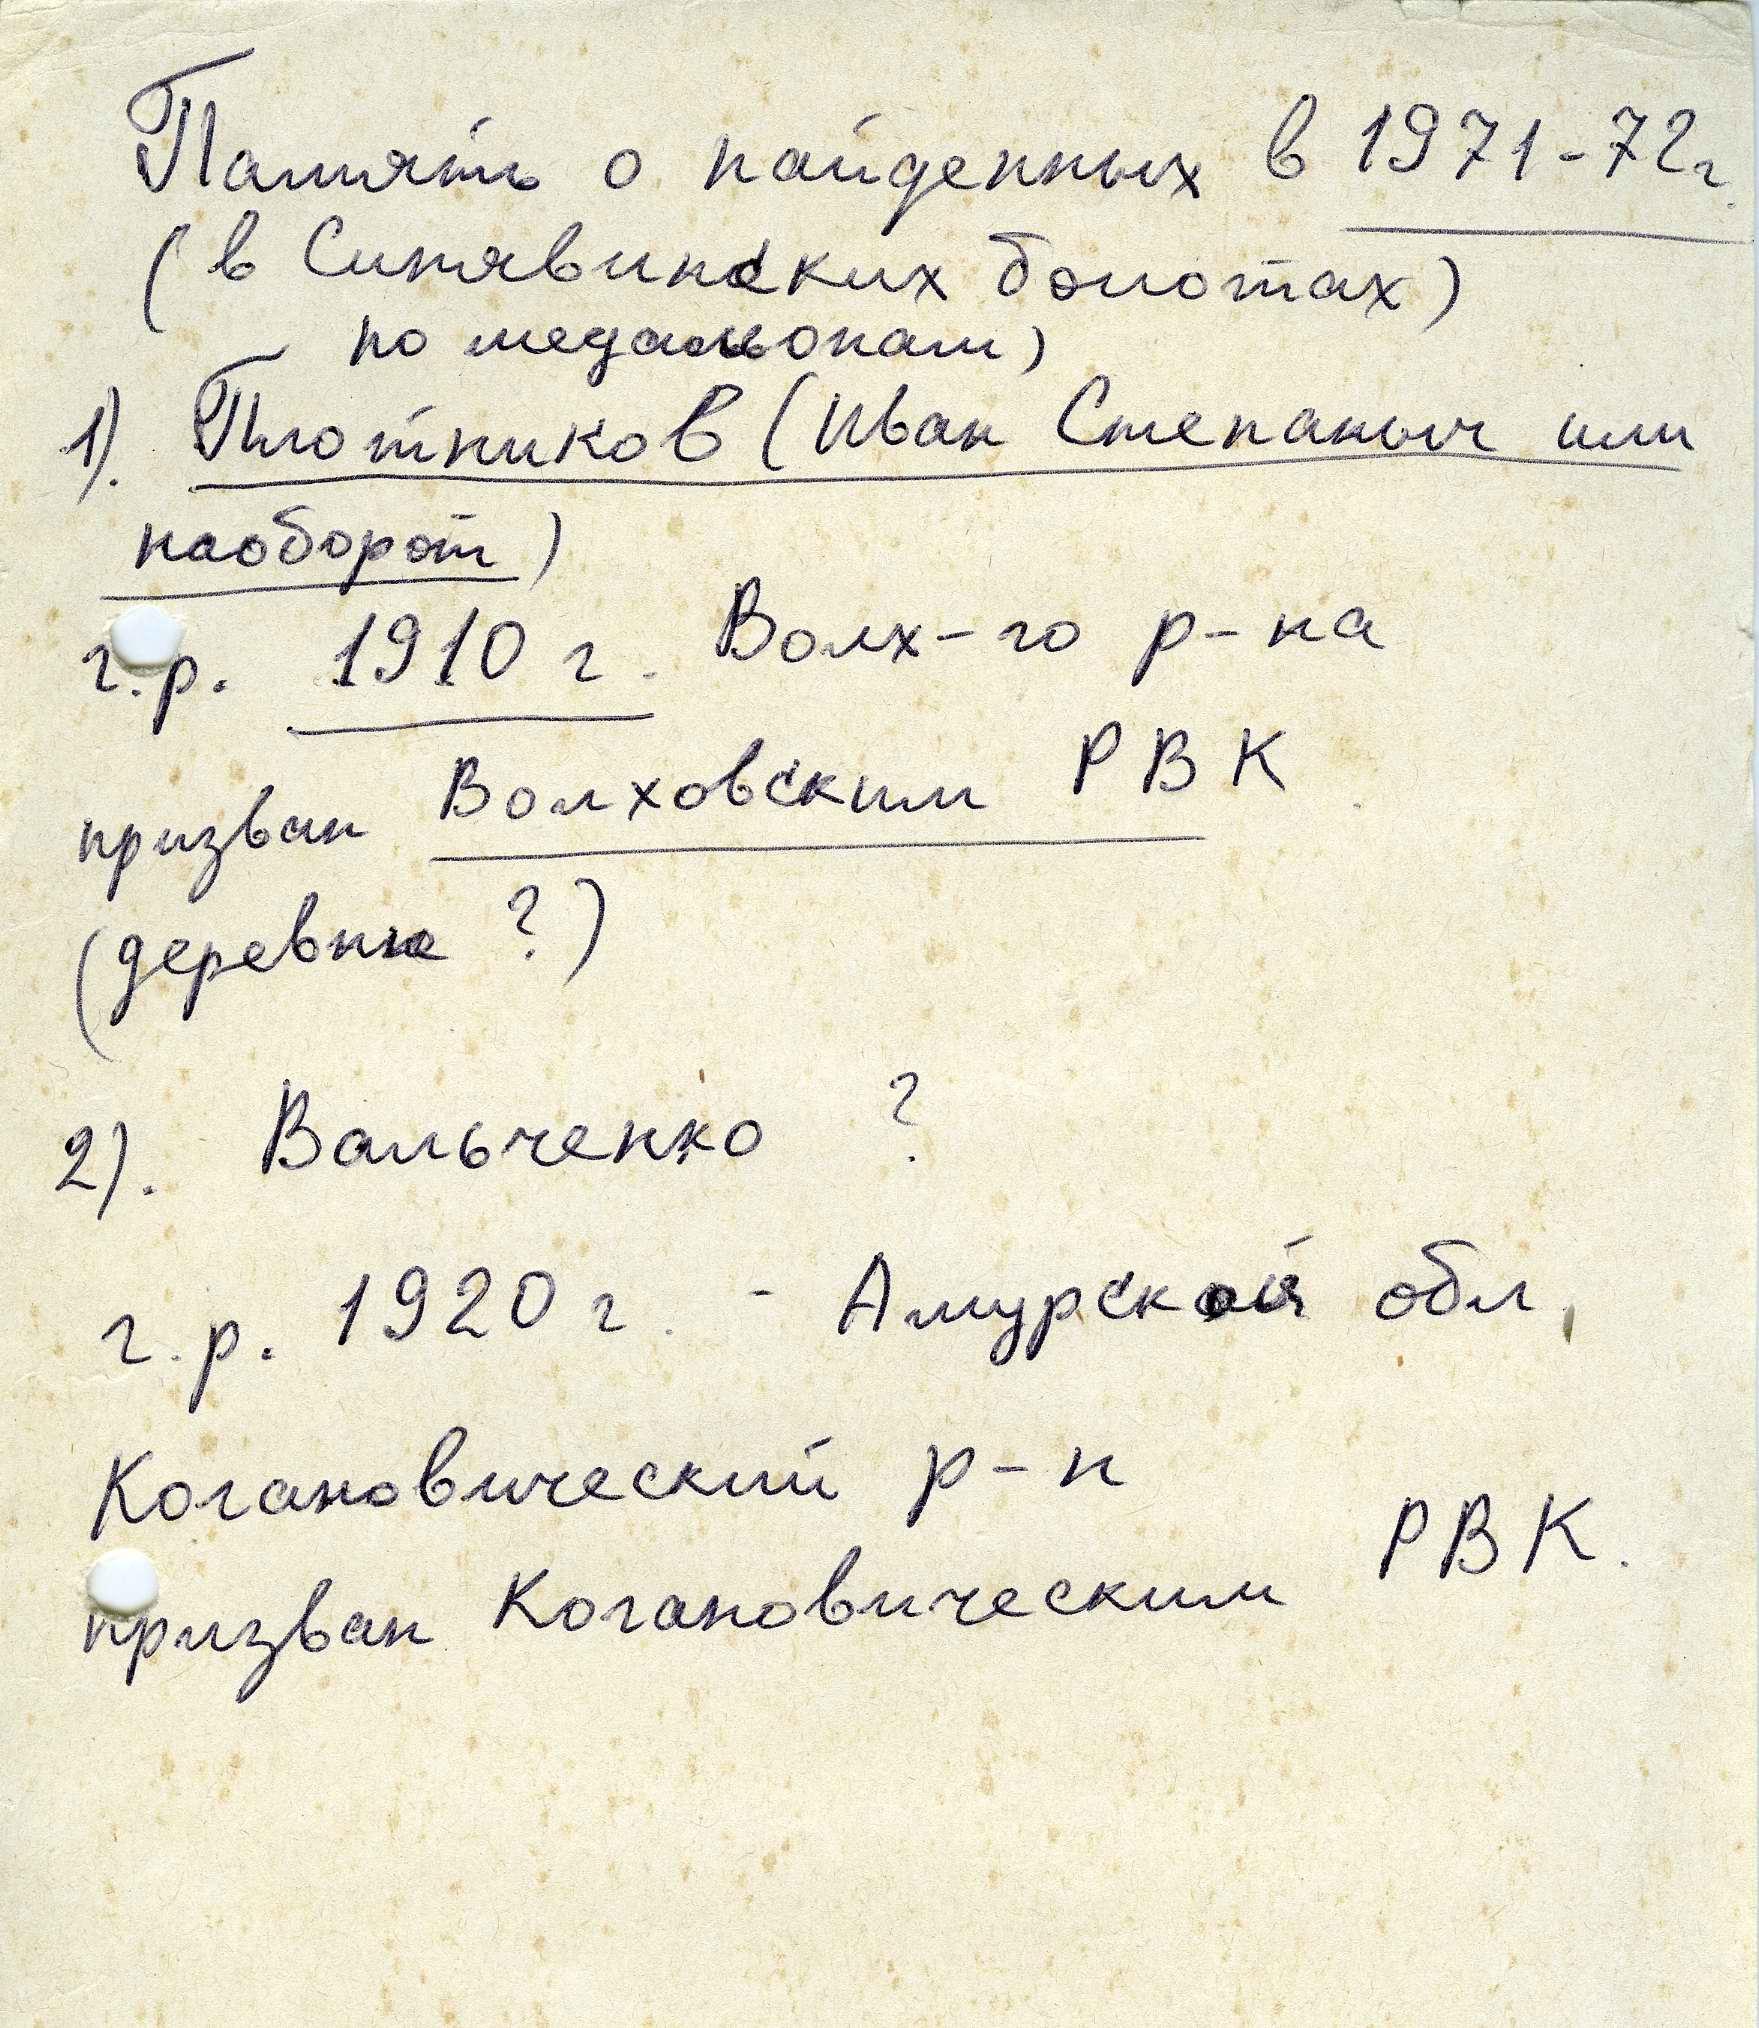 Память о найденных в 1971-72г.
(в Синявинских болотах)
по медальонам)
1). Плотников (Иван Степаныч или
наоборот)
г.р. 1910 г. Волх-го р-на
призван Волховским РВК.
(деревня ?)
2). Вальченко ?
г.р. 1920 г. - Амурской обл,
Когановический р-н
призван Когановическим РВК.